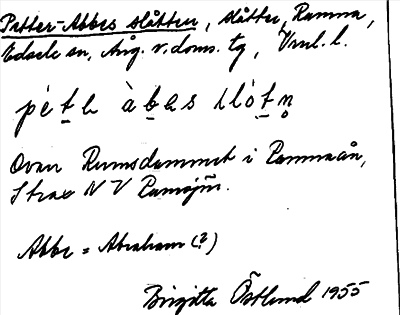 Petter-Abbes slåtten, slåtter, Ramna,
Edsele sn, Ång. v. doms. tg, Vnml. l.
pèt̲e àb̲as slót̲n̥
Ovan Rumsdammet i Ramnaån,
Strax NV Ramsjön.
Abbe = Abraham (?)
Birgitta Östlund 1955